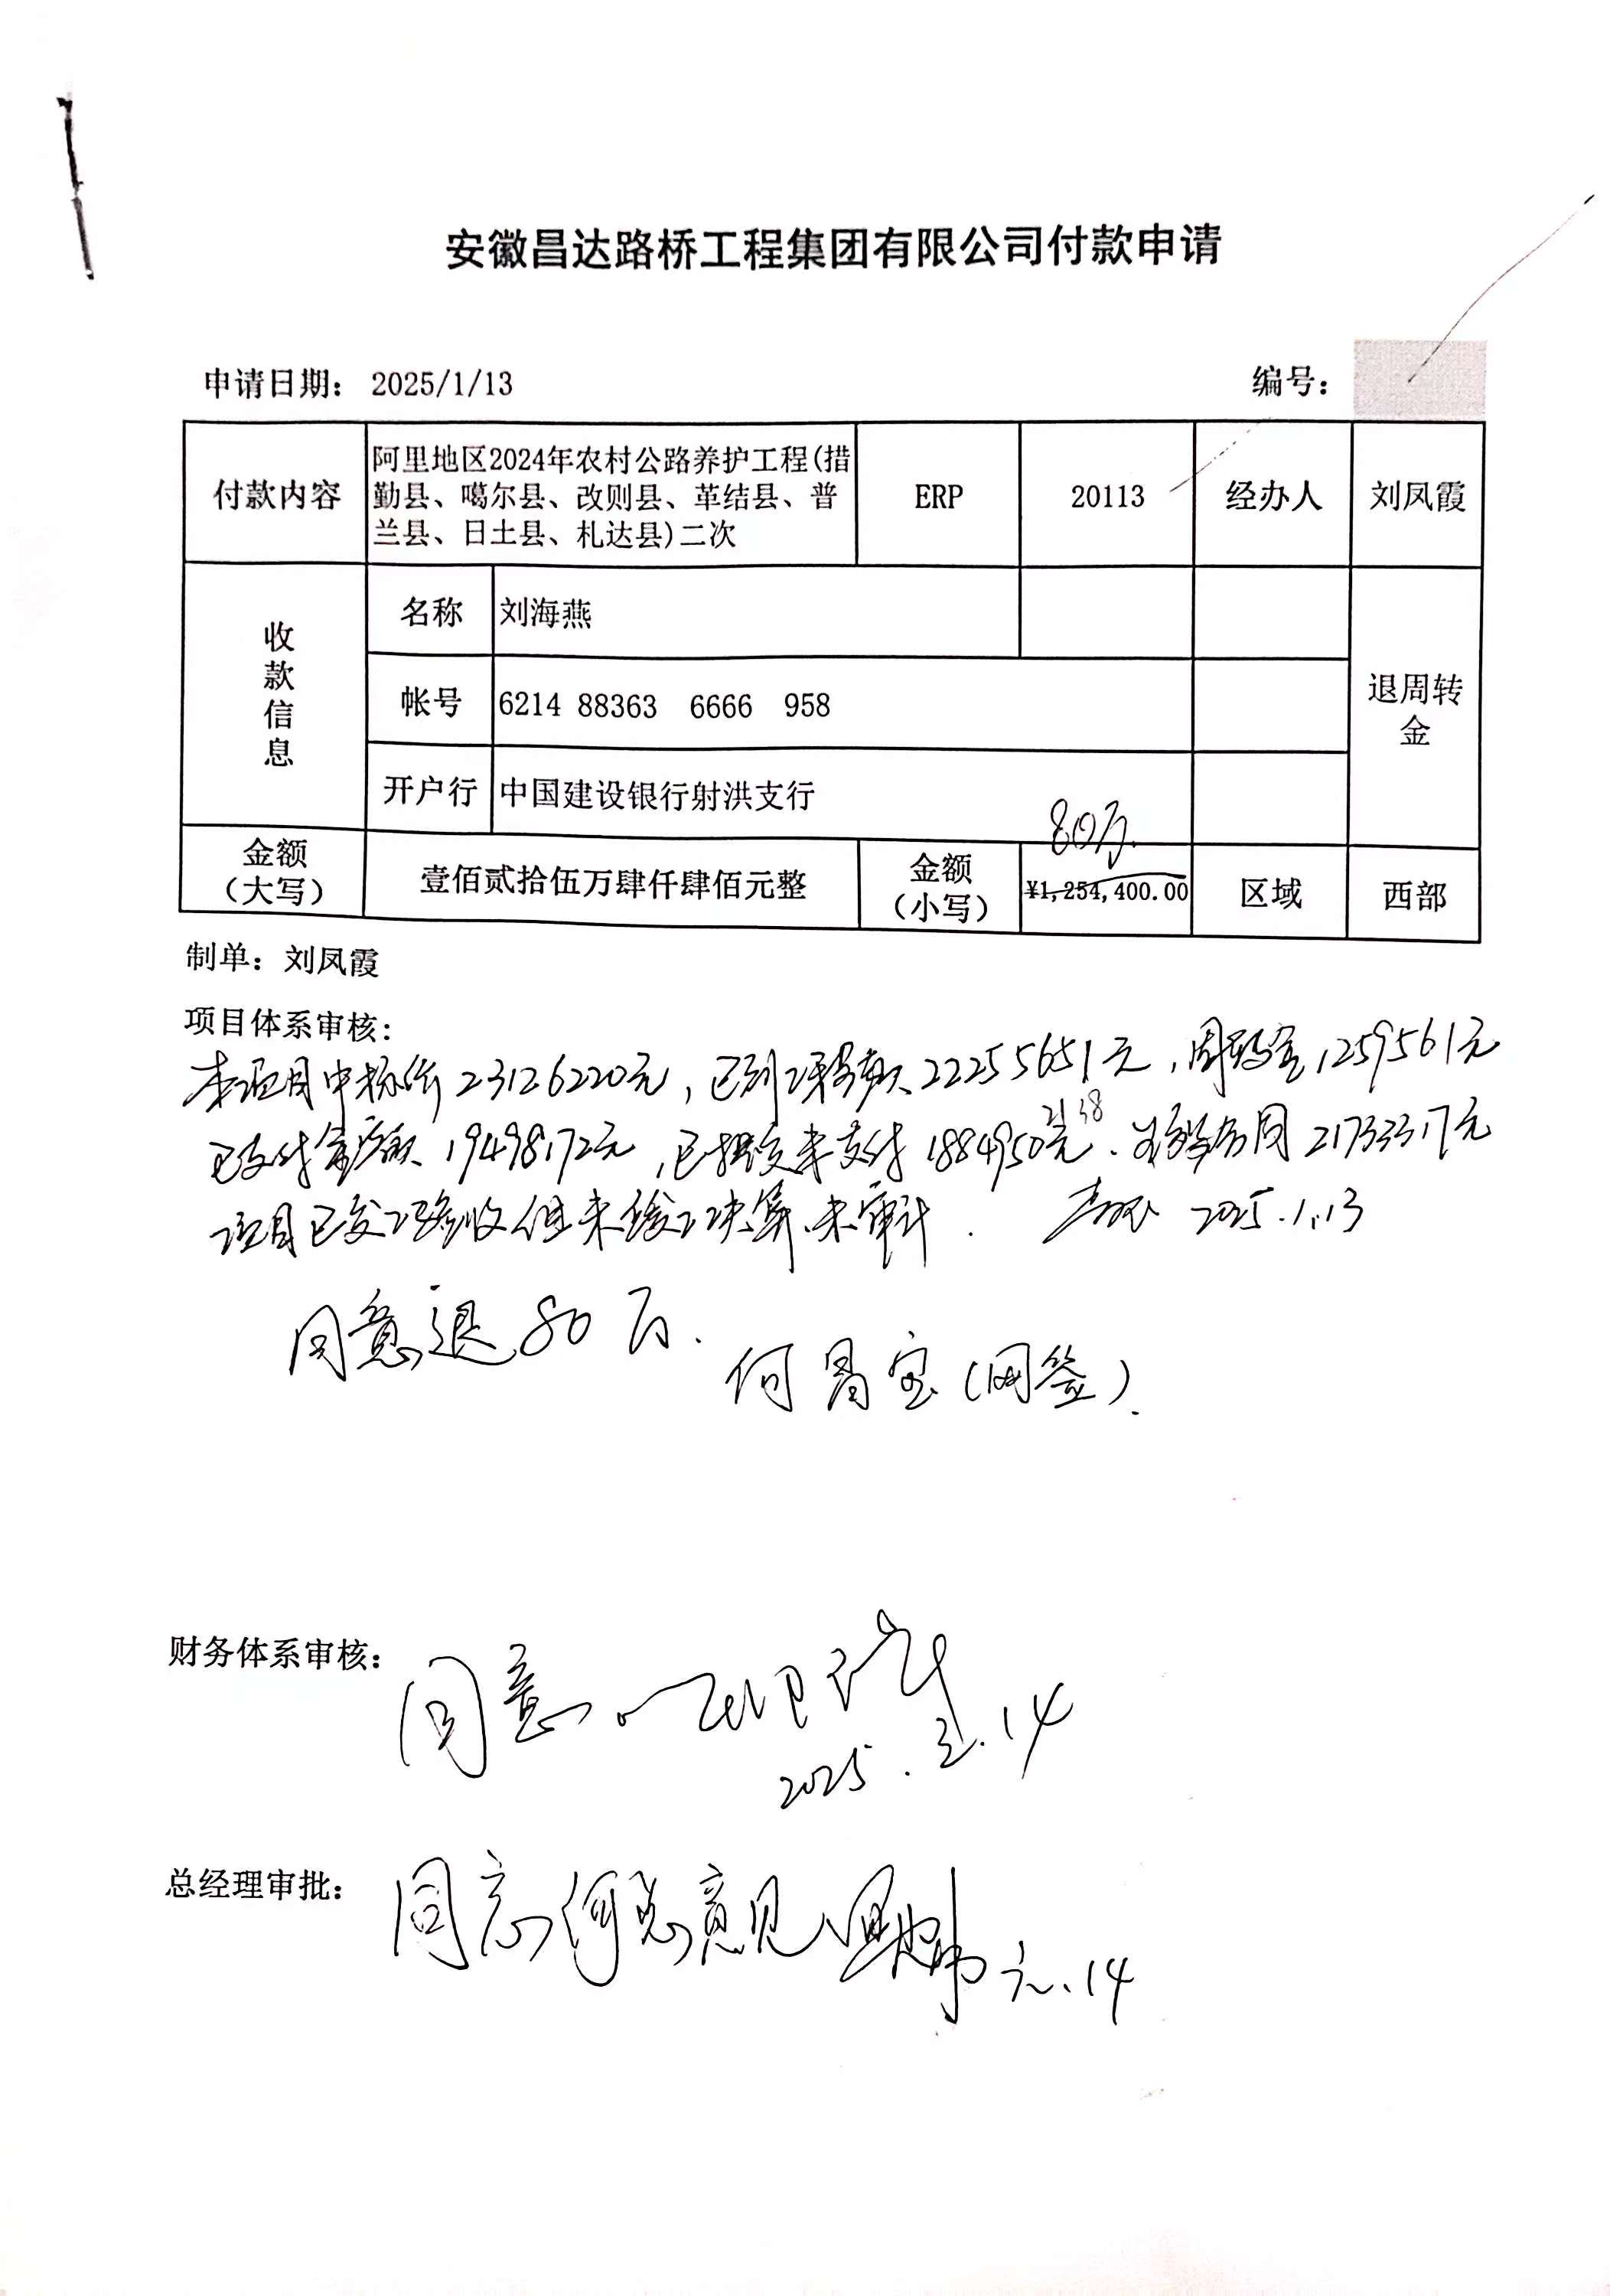 安徽昌达路桥工程集团有限公司付款申请
申请日期： 2025/1/13 编号：
付款内容 阿里地区2024年农村公路养护工程(措勤县、噶尔县、改则县、革结县、普兰县、日土县、札达县)二次 ERP 20113 经办人 刘凤霞
收款信息 名称 刘海燕 退周转金
帐号 6214 88363 6666 958
开户行 中国建设银行射洪支行
80万.
金额（大写） 壹佰贰拾伍万肆仟肆佰元整 金额（小写） ¥1,254,400.00 区域 西部
制单：刘凤霞
项目体系审核：
本项目中标价23126220元，已到工程款22255651元，周转金1259561元
已支付金额19498172元，已提交未支付1884950元. 合同21733317元
项目已交工验收但未竣工决算、未审计. 2025.1.13
同意退80万.
何昌宝（网签）.
财务体系审核：
同意.
2025.2.14
总经理审批：
同意何总意见 元.14